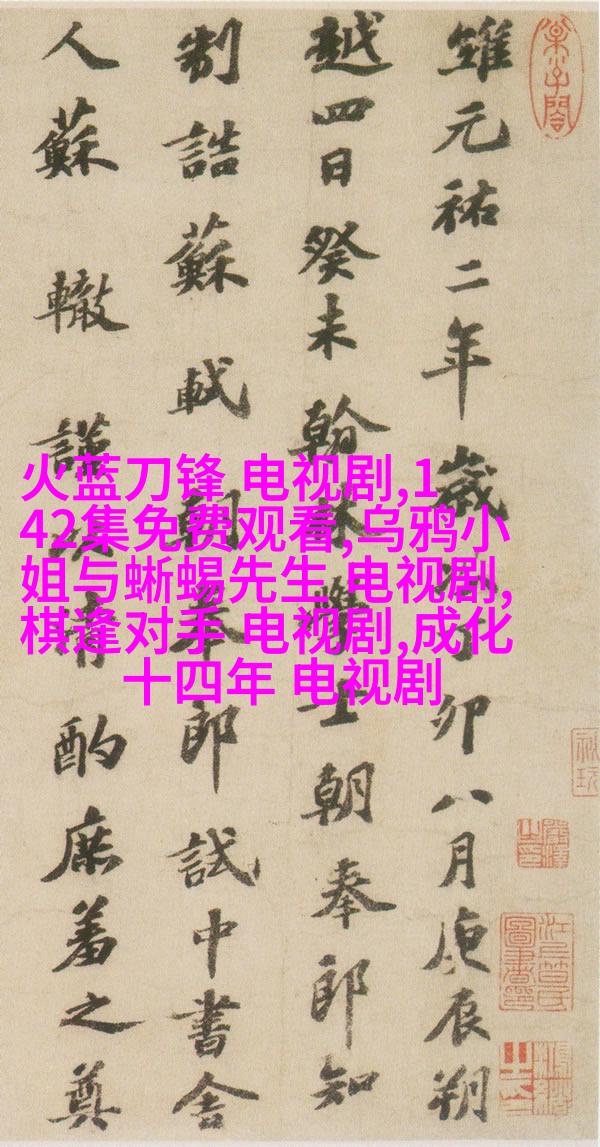 維元祐二年歲次丁卯八月庚辰朔
越四日癸未翰林學士朝奉郎知
制誥蘇軾朝奉郎試中書舍
人蘇轍謹以清酌庶羞之奠
火蓝刀锋 电视剧,1
42集免费观看,乌鸦小
姐与蜥蜴先生 电视剧,
棋逢对手 电视剧,成化
十四年 电视剧